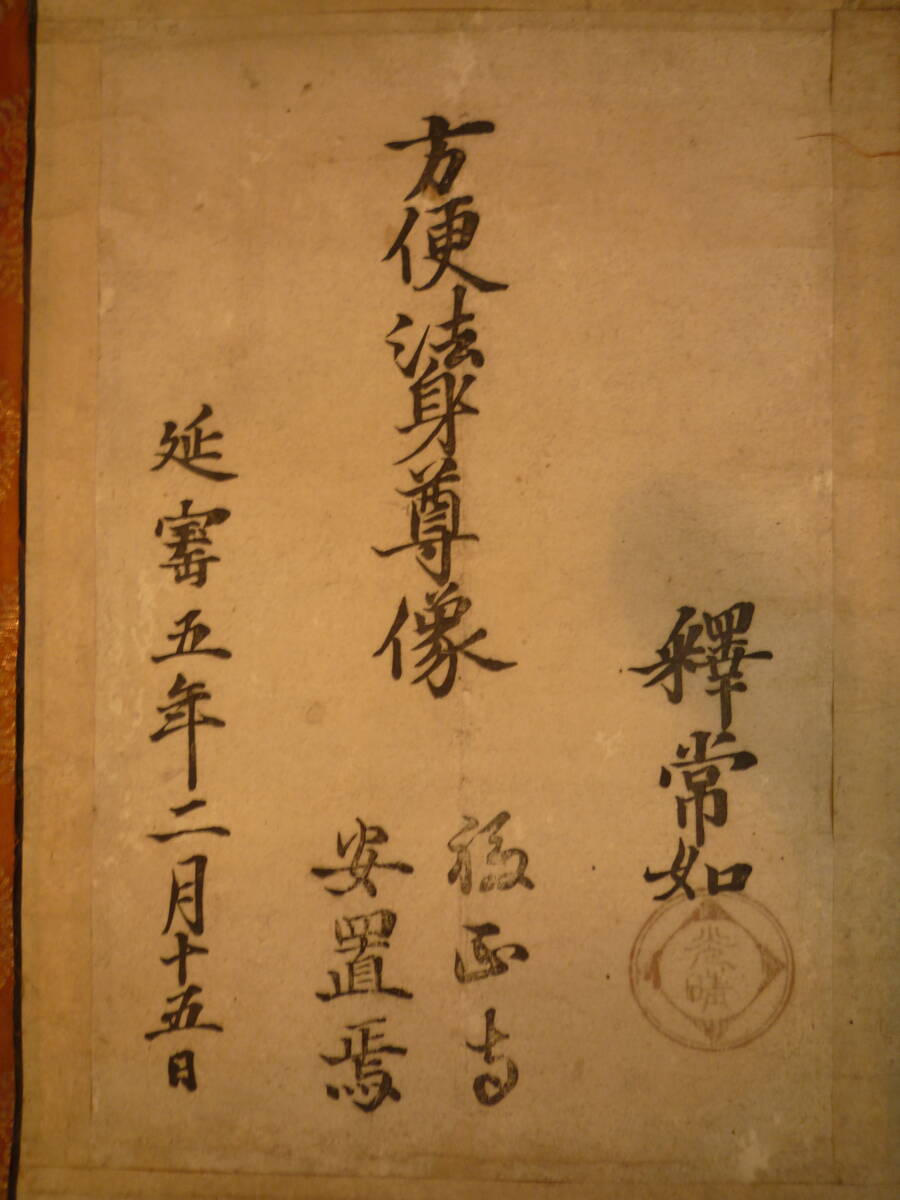 釋常如
光晴
方便法身尊像
福正寺
安置焉
延寶五年二月十五日